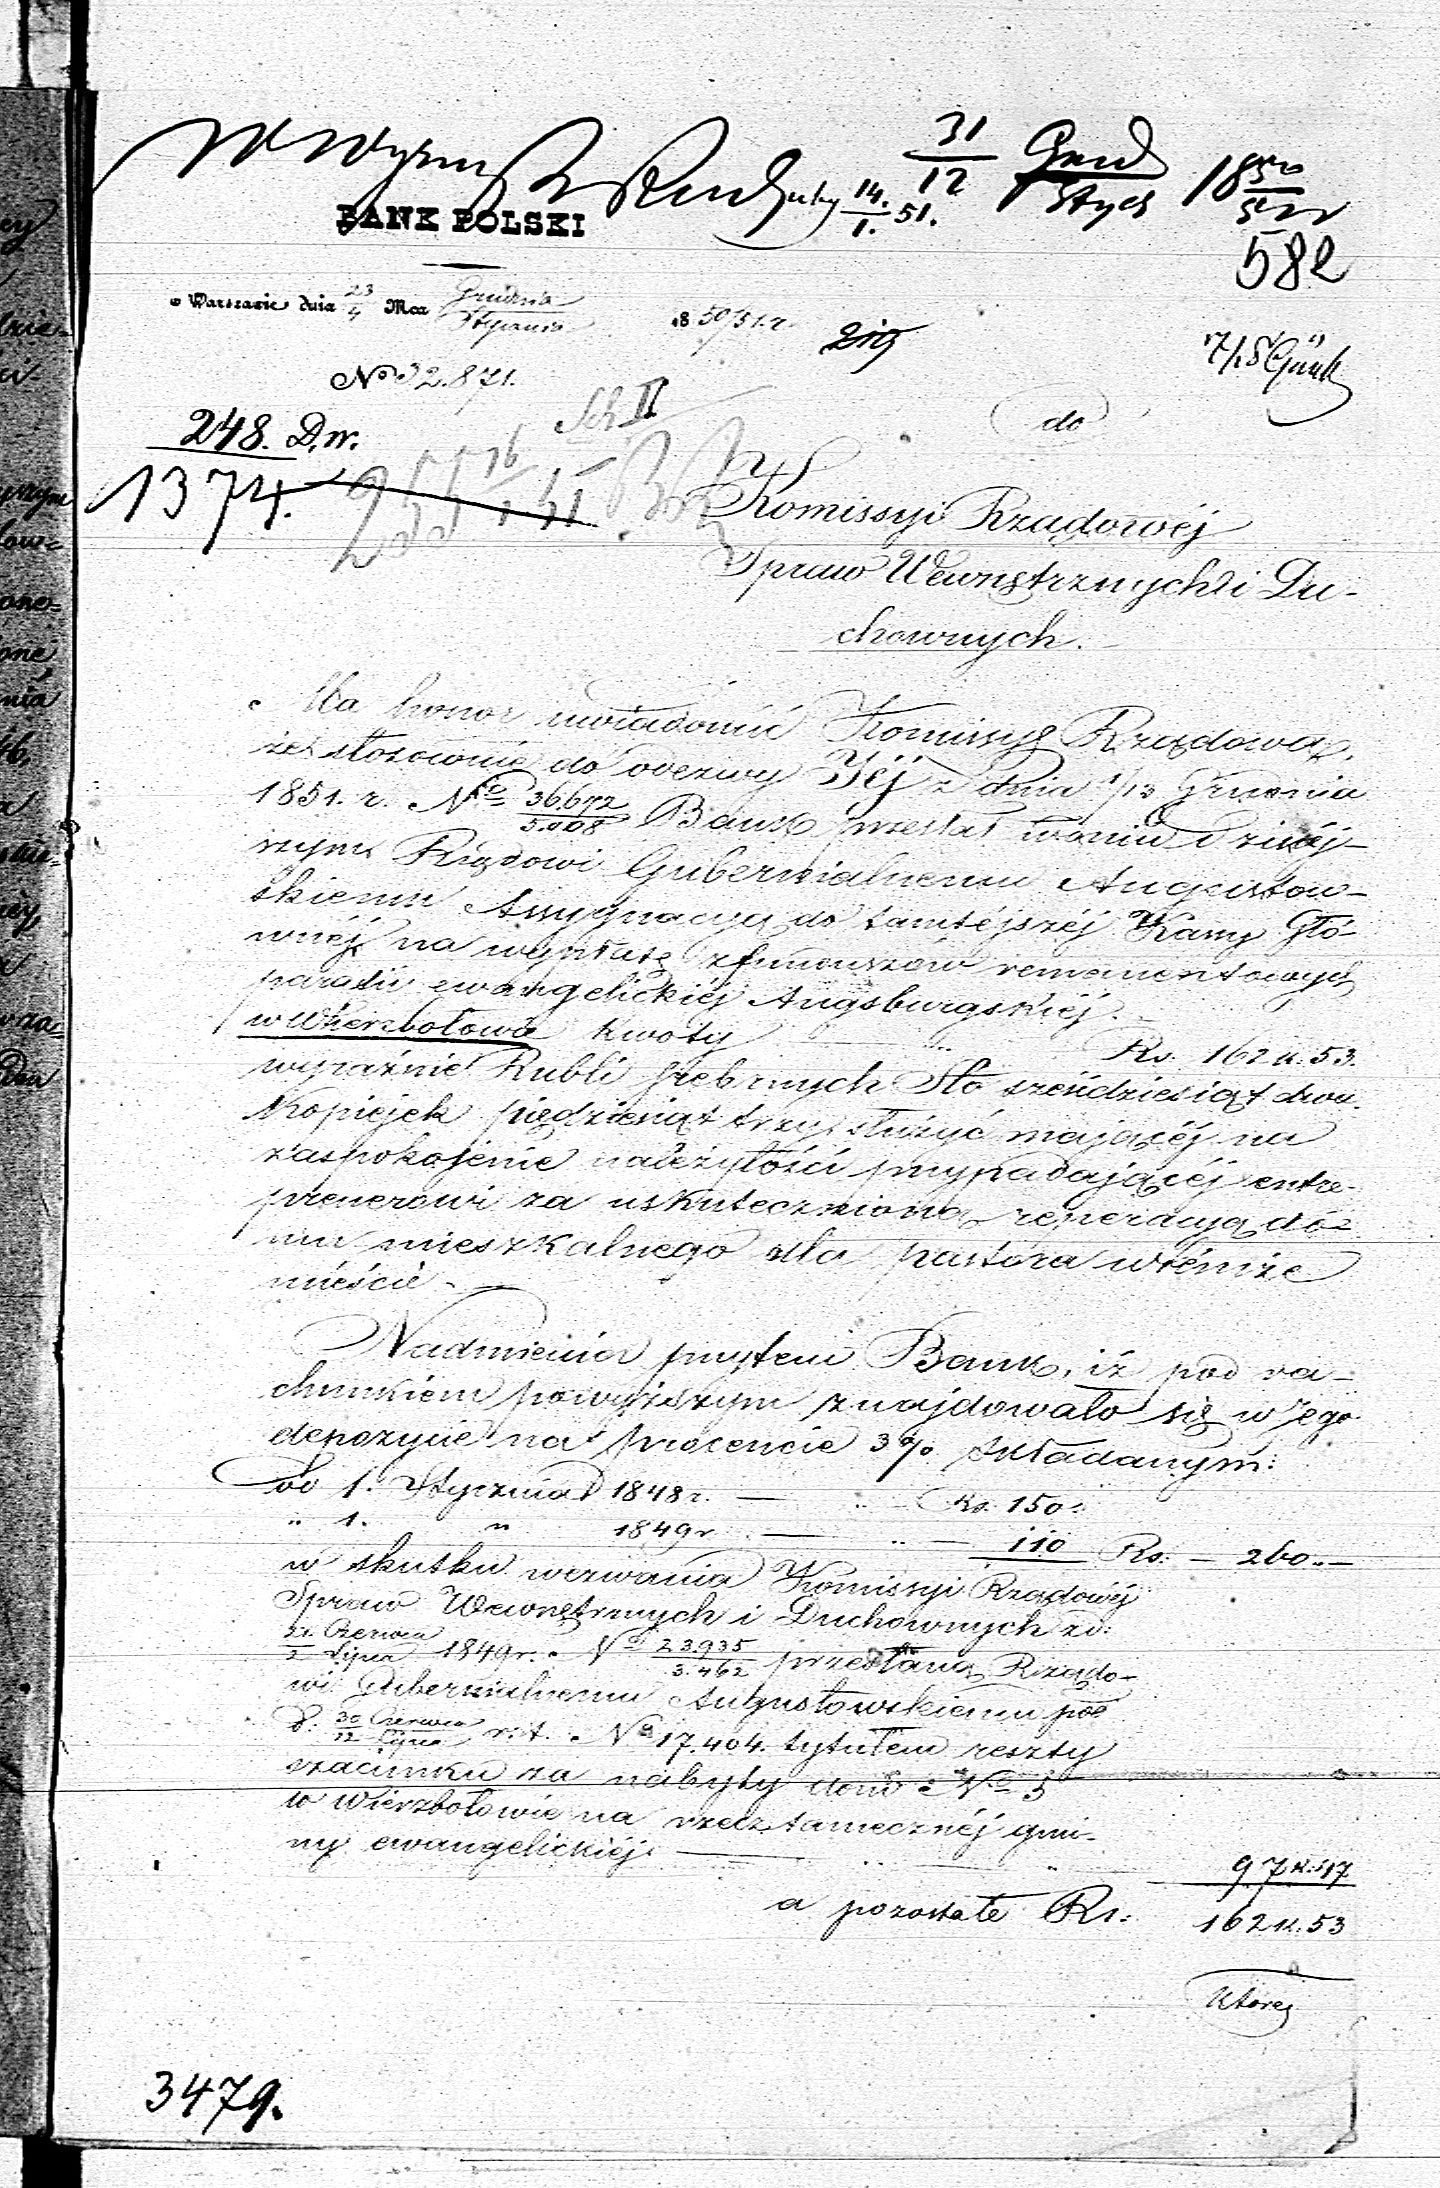 31/12 Grud/Stycz 1850/51
14./1. 51.
BANK POLSKI
582
w Warszawie dnia 23/4 Mca Grudnia/Stycznia 1850/51 r.
No 32.871.
Sek II
do
248. D.W.
1374.
Komissyi Rządowéj
Spraw Wewnętrznych i Du-
chownych.
Ma honor uwiadomić Komissyę Rządową,
że stosownie do odezwy Jéj z dnia 1/13 Grudnia
1851. r. No 36.672/5.908 Bank przesłał w dniu dzisiéj-
szym Rządowi Gubernialnemu Augustow-
skiemu Assygnacyą do tamtéjszéj Kassy Głó-
wnéj na wypłatę z funduszów remanentowych
parafii ewangelickiéj Augsburgskiéj
w Wierzbołowie kwoty Rs. 162 k. 53.
wyraźnie Rubli srebrnych Sto sześćdziesiąt dwa
Kopiejek pięćdziesiąt trzy, służyć mającéj na
zaspokojenie należytości przypadającéj entre-
prenerowi za uskutecznioną reperacyą do-
mu mieszkalnego dla pastora w témże
mieście.
Nadmienia przytem Bank, iż pod ra-
chunkiem powyższym znajdowało się w Jego
depozycie na procencie 3% składanym:
od 1. Stycznia 1848 r. — Rs. 150
" 1. " 1849 r — 110 Rs. — 260 —
w skutku wezwania Komissyi Rządowéj
Spraw Wewnętrznych i Duchownych z d:
Czerwca/2 Lipca 1849 r. No 23.935/3.462 przesłano Rządo-
wi Gubernialnemu Augustowskiemu pod
d. 30 Czerwca/12 Lipca r. t. No 17.404. tytułem reszty
szacunku za nabyty dom No 5
w Wierzbołowie na rzecz tamecznéj gmi-
ny ewangelickiéj. — 97 k. 47
a pozostałe Rs: 162 k. 53
które
3479.